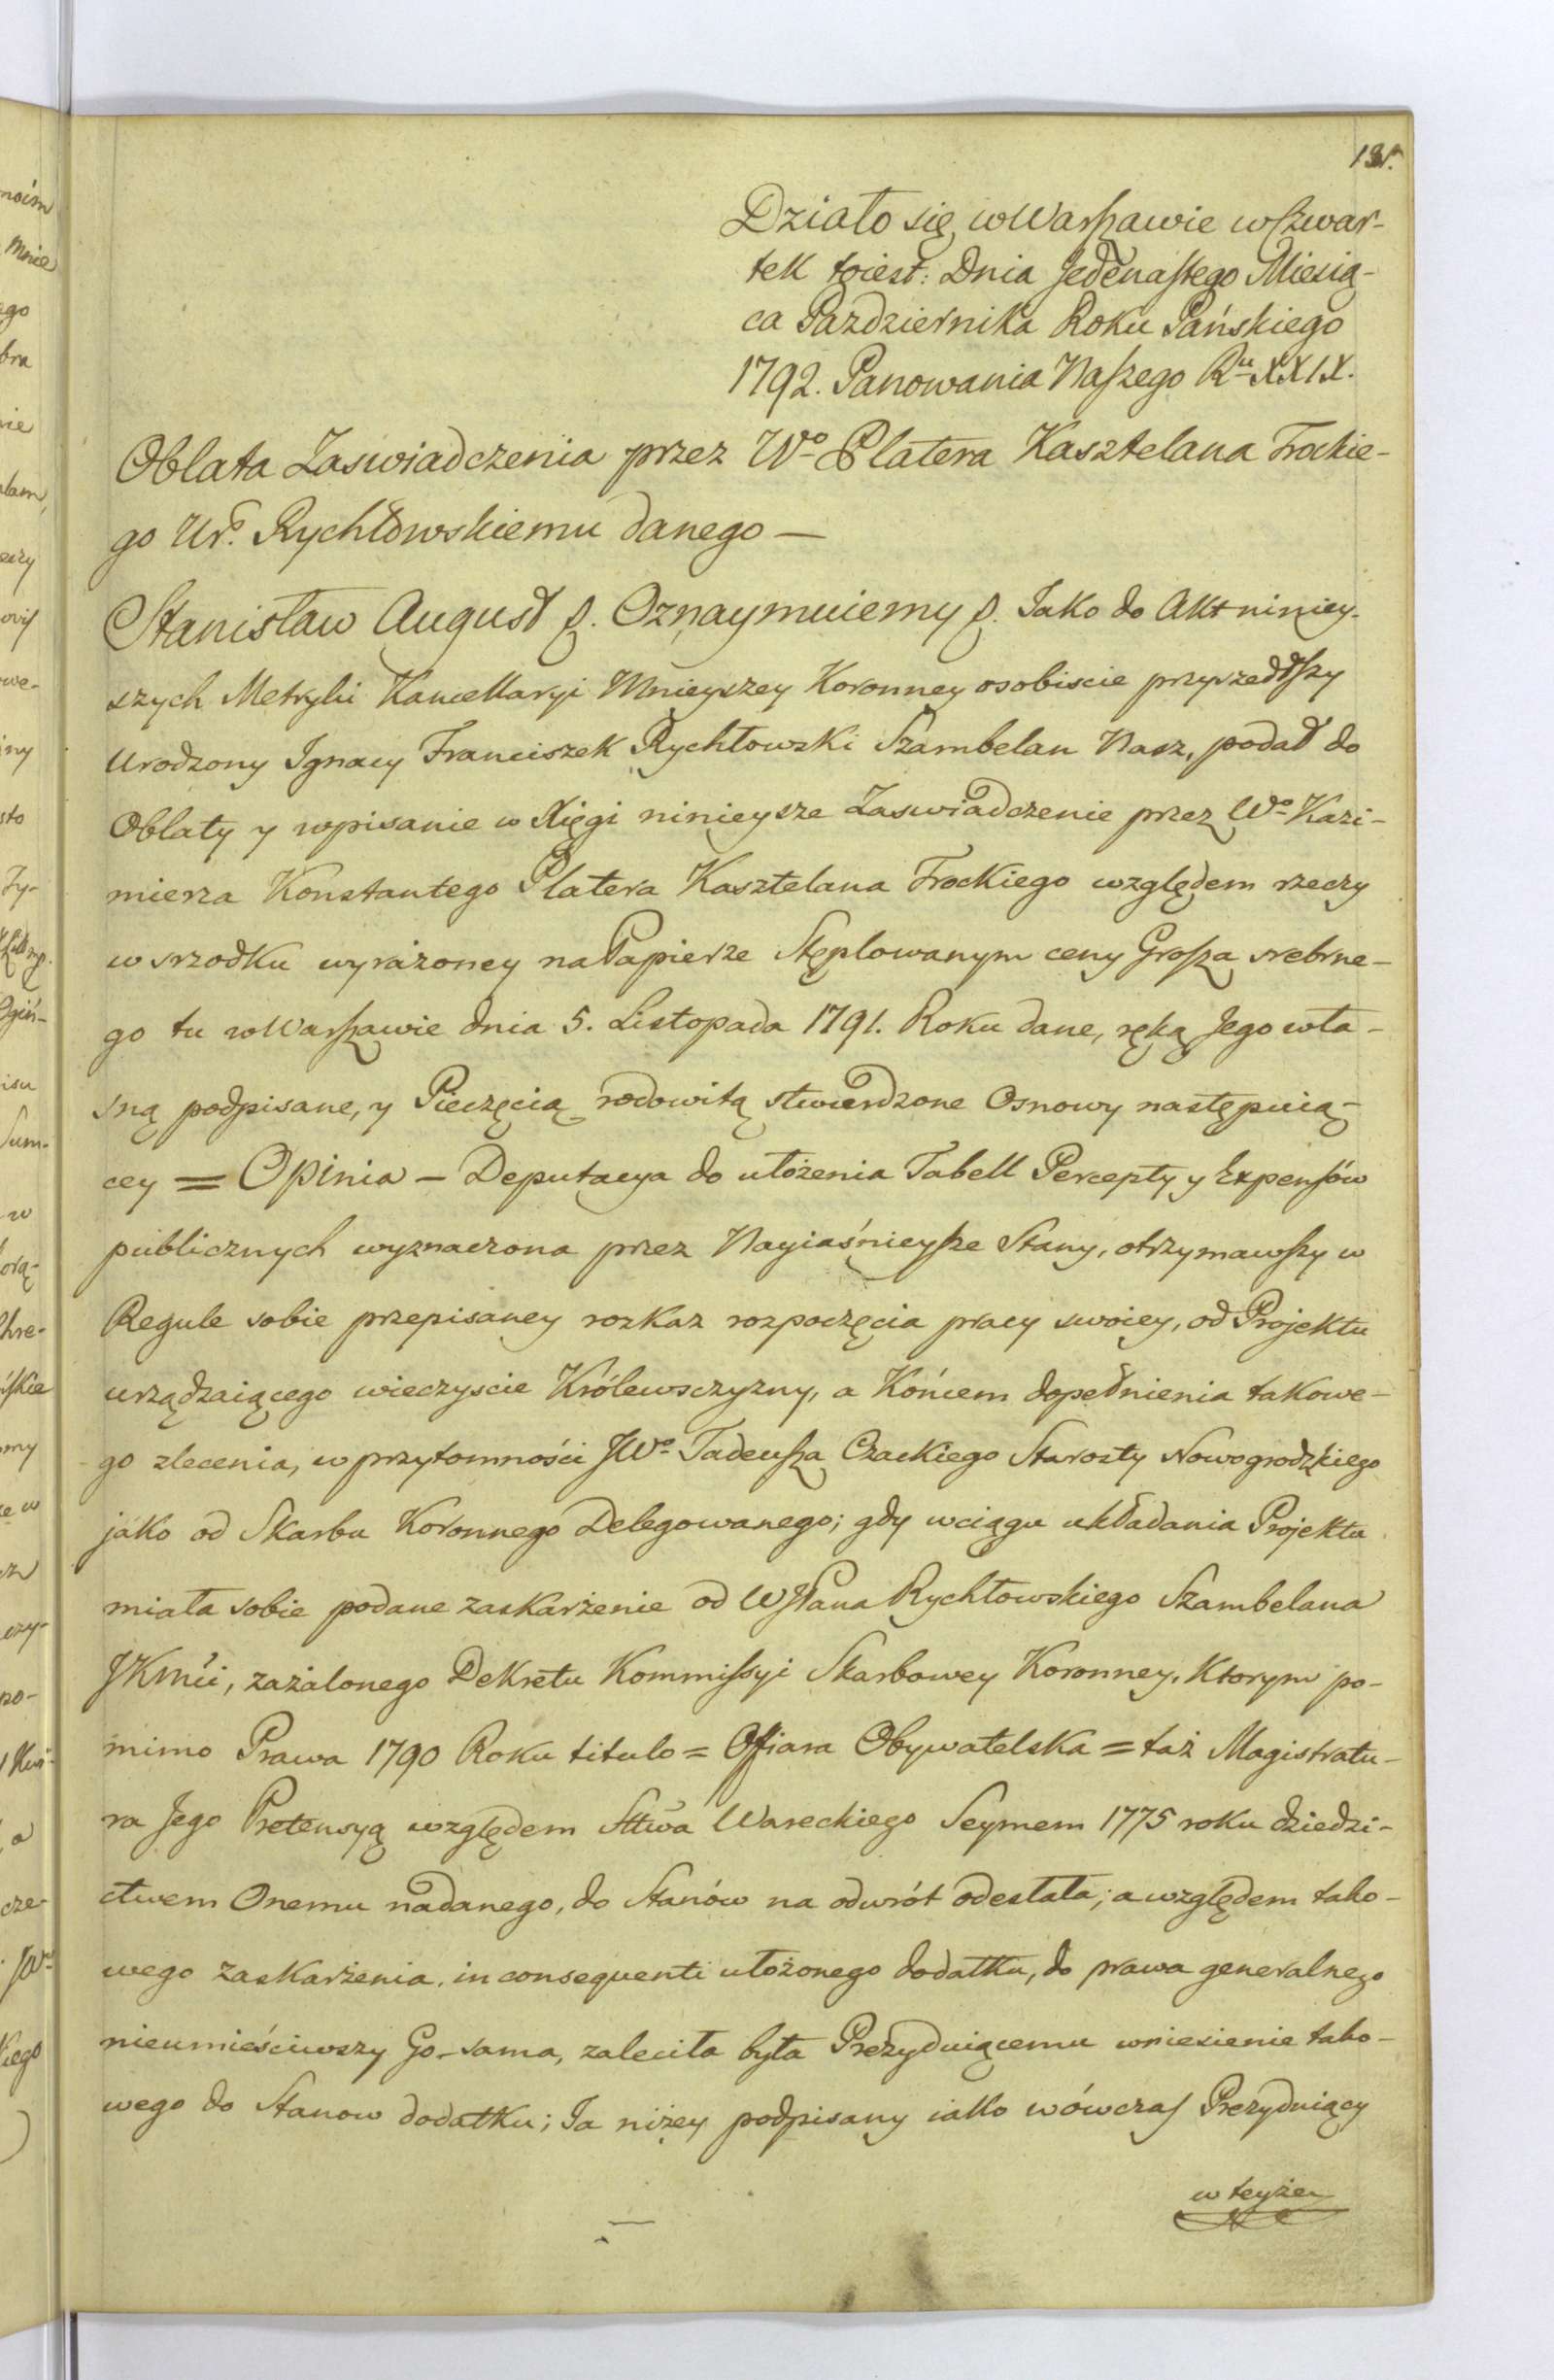 191.
Działo się w Warszawie w Czwar-
tek toiest: Dnia Jedenastego Miesią-
ca Pazdziernika Roku Pańskiego
1792. Panowania Naszego Ru XXIX.
Oblata Zaswiadczenia przez Wo Platera Kasztelana Trockie-
go Ur. Rychłowskiemu danego —
Stanisław August p. Oznaymuiemy p. Jako do Akt niniey-
szych Metryki Kancellaryi Mnieyszey Koronney osobiscie przyszedłszy
Urodzony Ignacy Franciszek Rychłowski Szambelan Nasz, podał do
Oblaty y wpisanie w Xięgi ninieysze Zaswiadczenie przez Wo Kazi-
mierza Konstantego Platera Kasztelana Trockiego względem rzeczy
w srzodku wyrażoney na Papierze Stęplowanym ceny Grosza srebrne-
go tu w Warszawie dnia 5. Listopada 1791. Roku dane, ręką Jego wła-
sną podpisane, y Pieczęcią rodowitą stwierdzone Osnowy następuią-
cey = Opinia — Deputacya do ułożenia Tabell Percepty y Expensów
publicznych wyznaczona przez Nayiaśnieysze Stany, otrzymawszy w
Regule sobie przepisaney rozkaz rozpoczęcia pracy swoiey, od Projektu
urządzaiącego wieczyscie Królewsczyzny, a Końcem dopełnienia takowe-
go zlecenia, w przytomności JWo Tadeusza Czackiego Starosty Nowogrodzkiego
jako od Skarbu Koronnego Delegowanego; gdy wciągu układania Projektu
miała sobie podane zaskarżenie od WJPana Rychłowskiego Szambelana
JKMći, zażalonego Dekretu Kommissyi Skarbowey Koronney, Ktorym po-
mimo Prawa 1790 Roku titulo = Ofiara Obywatelska = taż Magistratu-
ra Jego Pretensyą względem Sttwa Wareckiego Seymem 1775 roku dziedzi-
ctwem Onemu nadanego, do Stanów na odwrót odesłała; a względem tako-
wego zaskarżenia, in consequenti ułożonego dodatku, do prawa generalnego
nieumieściwszy Go sama, zaleciła była Prezyduiącemu wniesienie tako-
wego do Stanow dodatku; Ja niżey podpisany iako wówczas Prezyduiący
w teyże